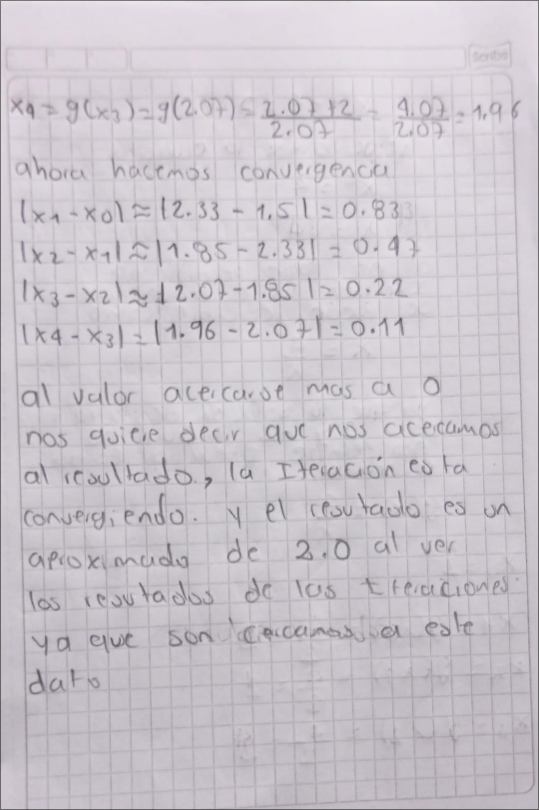 x4 = g(x3) = g(2.07) = 2.07+2 / 2.07 = 4.07 / 2.07 = 1.96
ahora hacemos convergencia
|x1 - x0| ≈ |2.33 - 1.5| = 0.83
|x2 - x1| ≈ |1.85 - 2.33| = 0.47
|x3 - x2| ≈ |2.07 - 1.85| = 0.22
|x4 - x3| = |1.96 - 2.07| = 0.11
al valor acercarse mas a 0
nos quiere decir que nos acercamos
al resultado, la Iteración esta
convergiendo. y el resultado es un
aproximado de 2.0 al ver
los resultados de las iteraciones
ya que son cercanas a este
dato